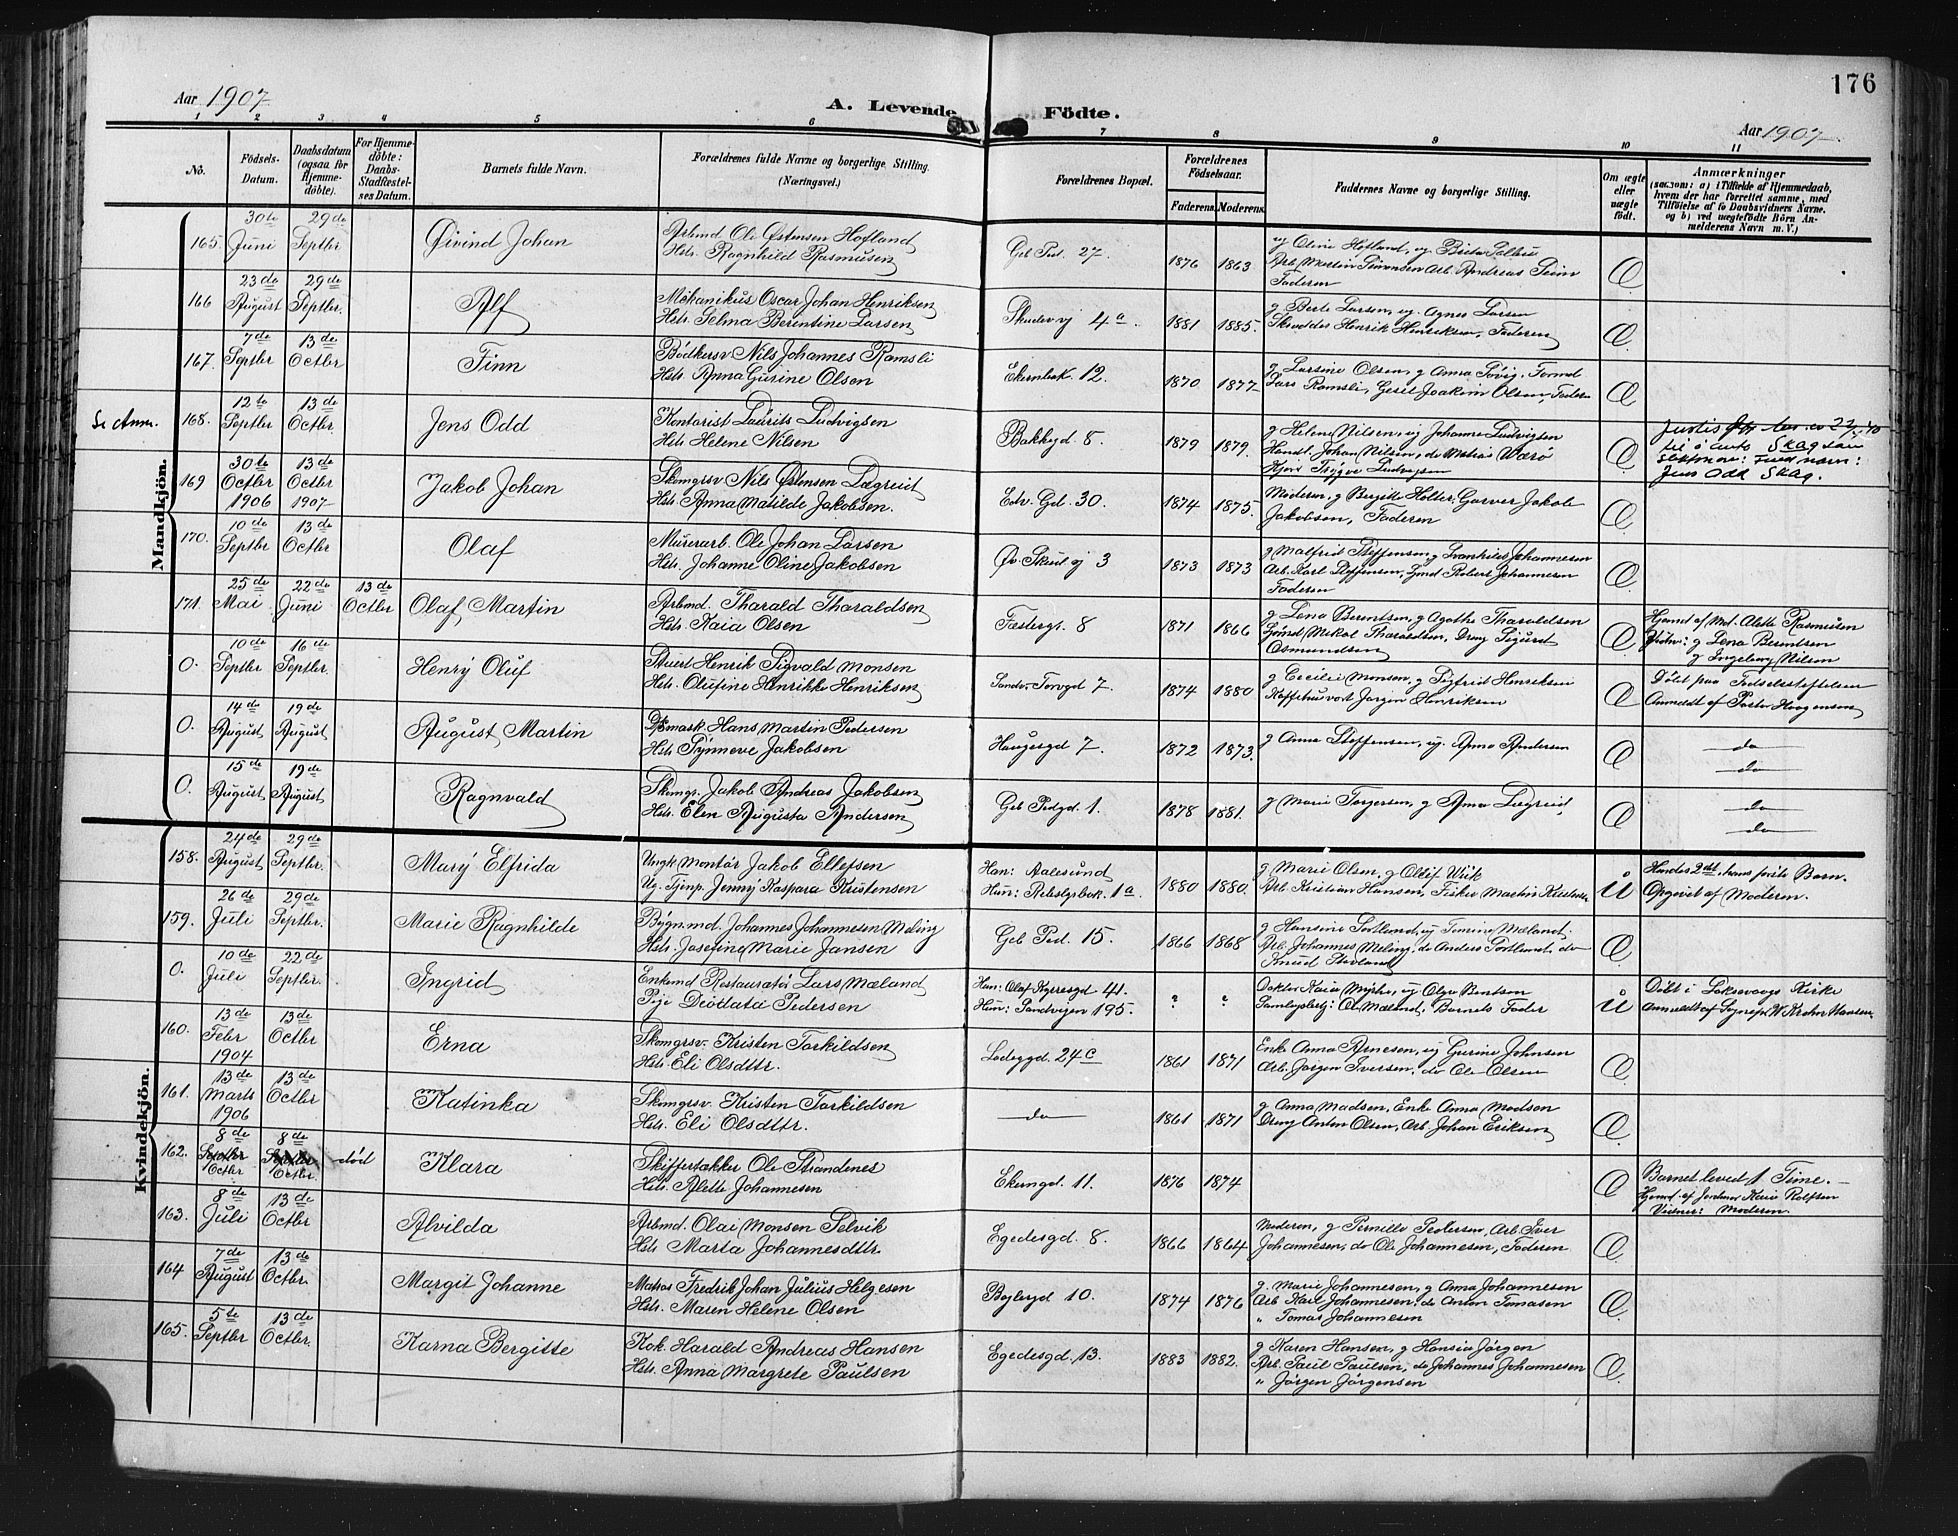 176
Aar 1907
A. Levende Födte.
Aar 1907
1 2 3 4 5 6 7 8 9 10 11
No.
Födsels-Datum.
Daabsdatum (ogsaa for Hjemmedöbte).
For Hjemmedöbte: Daabs-Stadfæstelses Datum.
Barnets fulde Navn.
Forældrenes fulde Navne og borgerlige Stilling. (Næringsvei.)
Forældrenes Bopæl.
Forældrenes Födselsaar.
Faderens. Moderens.
Faddernes Navne og borgerlige Stilling.
Om ægte eller uægte födt.
Anmærkninger
(saasom: a) i Tilfælde af Hjemmedaab, hvem der har forrettet samme, med Tilföielse af to Daabsvidners Navne. og b) ved uægtefödte Börn Anmelderens Navn m. V.)
Mandkjön.
165. 30te Juni 29de Septbr Øivind Johan
Arbmd Ole Østensen Hofland
Hstr. Ragnhild Rasmusen
Geb Ped. 27. 1876 1863
Faderen
166 23de August 29de Septbr. Alf
Mekanikus Oscar Johan Henriksen
Hstr. Selma Berentine Larsen
Skudevj 4a. 1881 1885.
g Berte Larsen, ug Agnes Larsen
Henrik Henriksen, Faderen
167. 7de Septbr 13de Octbr Finn
Bödkersv Nils Johannes Ramsli
Hstr. Anna Gurine Olsen
Ekernbak. 12. 1870 1877
Lars Ramsli, Gesel Joakim Olsen, Faderen
Se Anm. 168. 12te Septbr 13de Octbr. Jens Odd
Kontorist Laurits Ludvigsen
Hstr Helene Nilsen
Bakkgd. 8. 1879 1879.
g Helene Nilsen, ug Johanne Ludvigsen
Handl. Johan Nilsen, do
Trygve Ludvigsen
Skag
Jens Odd Skag.
169 30te Octbr 1906 13de Octbr 1907 Jakob Johan
Skomgrsv Nils Østensen Lægreid
Hstr. Anna Matilde Jakobsen.
Edv. Gd. 30. 1874 1875.
Moderen, g Bergitte Holter, Garver Jakob
Jakobsen, Faderen
170. 10de Septbr 13de Octbr. Olaf
Murerarb. Ole Johan Larsen
Hstr. Johanne Oline Jakobsen
Øv. Skud vj 3 1873 1873
g Malfrid Steffensen, g Svanhild Johannesen
Arb. Karl Steffensen, Robert Johannesen
Faderen
171. 25de Mai. 22de Juni 13de Octbr Olaf Martin
Arbmd. Tharald Tharaldsen
Hstr. Kaia Olsen
Fæstergt. 8 1871 1866
g Lena Berentsen, g Agathe Tharaldsen
Mikal Tharaldsen, Dreng Sigurd
Osmundsen
Hjemd af Md. Alette Rasmusen
g Lena Berntsen
g Ingeborg Nilsen
0. 10de Septbr 16de Septbr. Henrÿ Oluf
Stuert Henrik Sigvald Monsen
Hstr. Olufine Henrikke Henriksen
Sandv. Torvgd 7. 1874 1880
g Cecilie Monsen, g Sigfrid Henriksen
Kaffehusvert Jörgen Henriksen
Döbt paa Födselsstiftelsen
Anmeldt af Pastor Haagensen
0. 14de August 19de August August Martin
Hans Martin Pedersen
Hstr. Synneve Jakobsen
Haugesgd 7. 1872 1873.
g Anna Steffensen, ug. Anna Andersen
do
do
0. 15de August 19de August Ragnvald
Skomgr. Jakob Andreas Jakobsen
Hstr. Elen Augusta Andersen
Geb Pedgd. 1. 1878 1881.
g Marie Torgersen, g Anna Lægreid
do
do
Kvindekjön.
158. 24de August 29de Septbr. Marÿ Elfrida
Ungk Montör Jakob Ellefsen
Ug. Tjenp. Jennÿ Kaspara Kristensen
Han: Aalesund
Hun: 1a 1880 1880.
g Marie Olsen, g Oluf Wiik
Arb. Kristian Hansen, Fisker Martin Kristensen
Hendes 2det, hans förste Barn.
Opgivet af Moderen.
159. 26de Juli 29de Septbr. Marie Ragnhilde
Bygn.md. Johannes Johannesen Meling
Hstr. Josefine Marie Jansen
Geb Ped. 15. 1866 1868
g Hansine Sortland, ug Timine Mæland.
Arb. Johannes Meling, do Anders Sortland, do
0. 10de Juli 22de Septbr. Ingrid
Enkemd Restauratör Lars Mæland
Pige Deottata Pedersen
Han: Olaf Kyrresgd 41.
Hun: Sandvigen 195. ? ?
Doktor Kaia Myhre, ug Olga Berntsen
Mæland, Barnets Fader
Döbt i Laksevaags Kirke
Anmeldt af Sognepr. W. Krohn Hansen
160. 13de Febr 1904 13de Octbr Erna
Skomgrsv. Kristen Torkildsen
Hstr. Eli Olsdttr.
Ladeggd. 24c 1861 1871
Enke Anna Arnesen, ug Gurine Johnsen
Arb. Jörgen Iversen, do Ole Olsen
161. 13de Marts 1906 13de Octbr Katinka
Skomgrsv. Kristen Torkildsen
Hstr. Eli Olsdttr.
do 1861 1871
g Anna Madsen, Enke Anna Madson
Dreng Anton Olsen, Arb. Johan Eriksen
162. 8de Septbr Octbr 8de Septbr Octbr. död Klara
Skiffertækker Ole Strandenes
Hstr. Alette Johannesen
Ekerngd. 11. 1876 1874
Barnet leved 1 Time.
Hjemd. af Jordmor Karie Rolfsen
Vidner: Moderen.
163. 8de Juli 13de Octbr Alvilda
Arbmd. Olai Monsen Selvik
Hstr. Marta Johannesdttr.
Egedesgd. 8. 1866 1864
Moderen, g Pernille Pedersen, Arb. Iver
Johannesen, do Ole Johannesen, Faderen
164 7de August 13de Octbr. Margit Johanne
Matros Fredrik Johan Julius Helgesen
Hstr. Maren Helene Olsen
10. 1874 1876
g Marie Johannesen, g Anna Johannesen
Arb Karl Johannesen, do Anton Tomasen
" Tomas Johannesen
165. 5te Septbr 13de Octbr. Karna Bergitte
Kok. Harald Andreas Hansen
Hstr. Anna Margrete Paulsen
Egedesgd. 13. 1883 1882.
g Karen Hansen, g Hansine Jörgen
Arb. Paul Paulsen, do Johannes Johannesen
" Jörgen Jörgensen